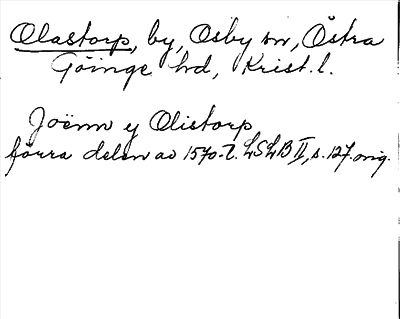 Olastorp, by, Osby sn, Östra
Göinge hd, Krist. l.
Joënn y Olistorp
förra delen av 1570-t. LSLB II, s. 127. orig.